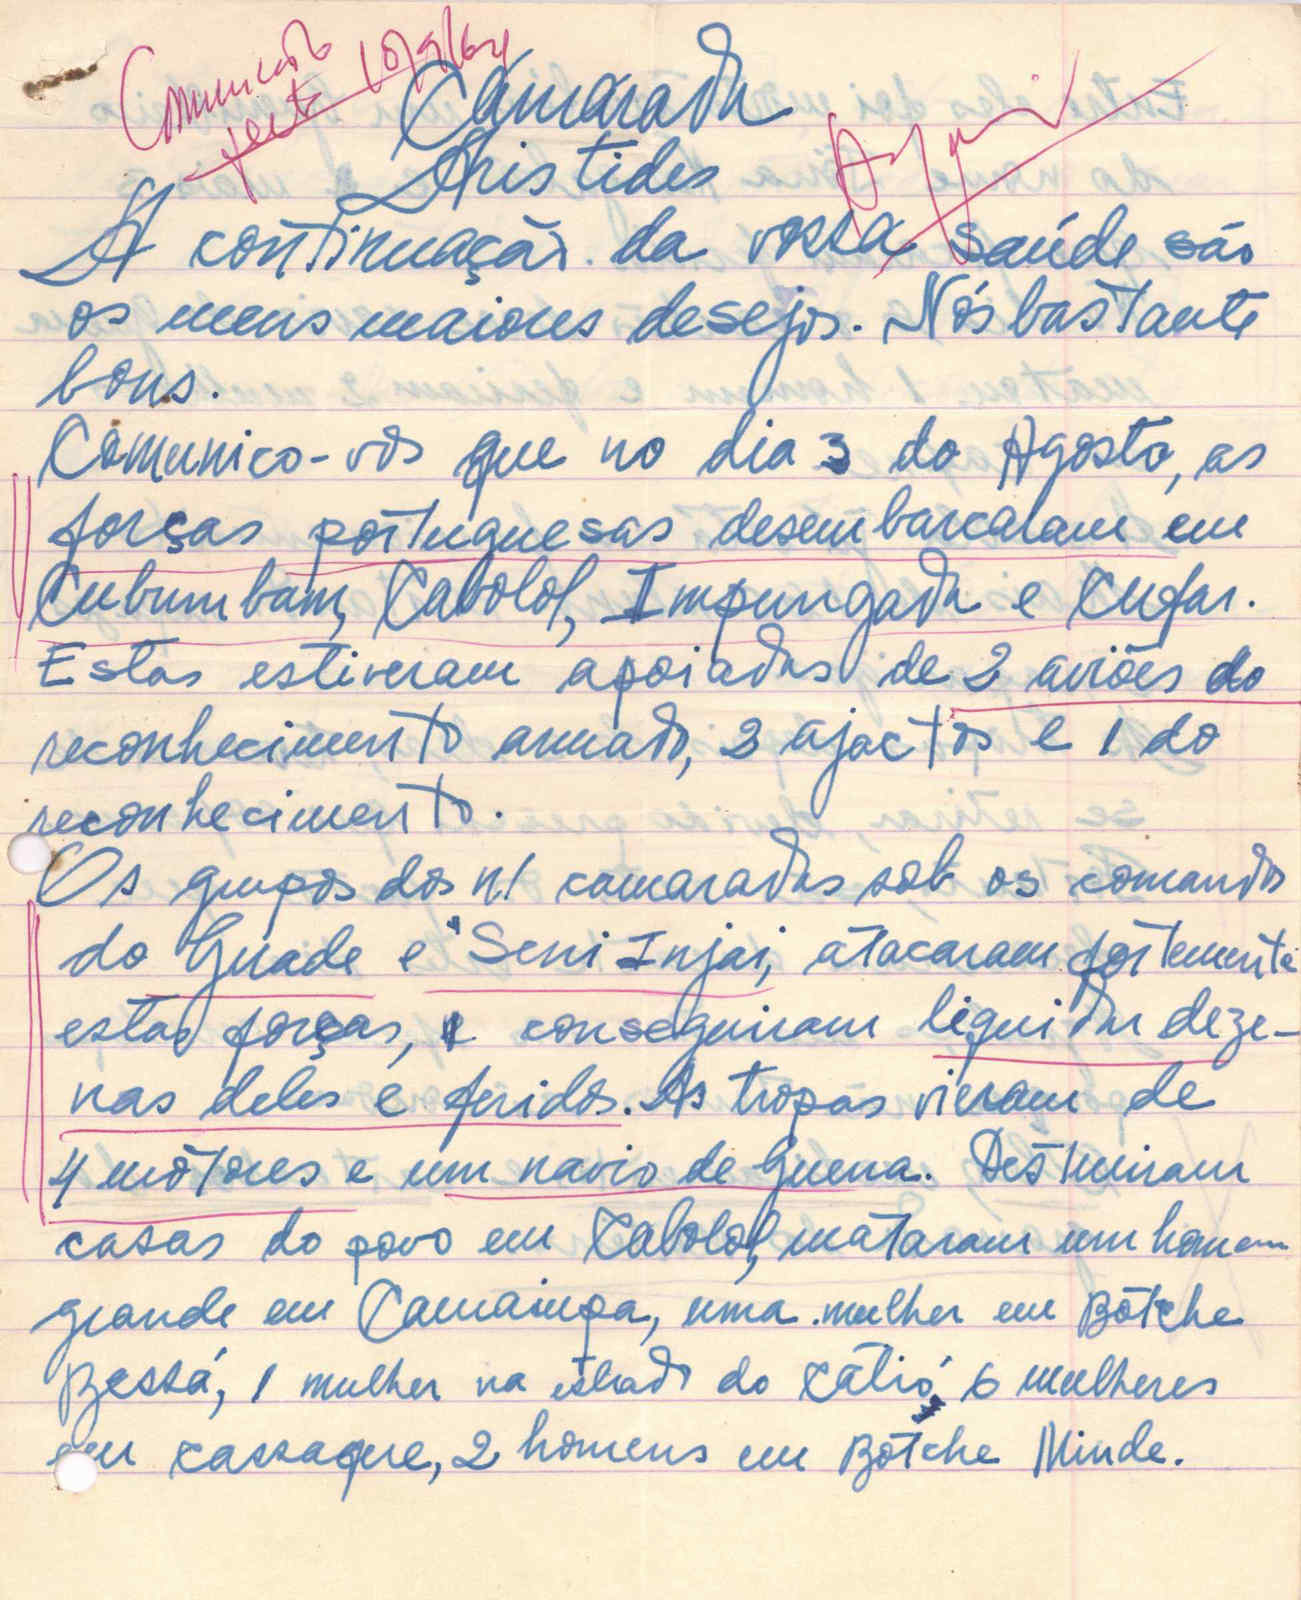 Comunicado
feito 10/9/64
Camarada
Aristides
A continuação da vossa saúde são
os meus maiores desejos. Nós bastante
bons.
Comunico-vos que no dia 3 do Agosto, as
forças portuguesas desembarcaram em
Cubumbam, Cabolol, Impungada e Cufar.
Estas estiveram apoiadas de 2 aviões do
reconhecimento armado, 2 ajactos e 1 do
reconhecimento.
Os grupos dos n/ camaradas sob os comandos
do Guade e Seni Injai, atacaram fortemente
estas forças, e conseguiram liquidar deze-
nas deles e feridos. As tropas vieram de
4 mótores e um navio de Guerra. Destruiram
casas do povo em Cabolol, mataram um homem
grande em Camaiupa, uma mulher em Bótche
Bessá, 1 mulher na estrada do Cátió, 6 mulheres
em Cassaque, 2 homens em Bótche Minde.